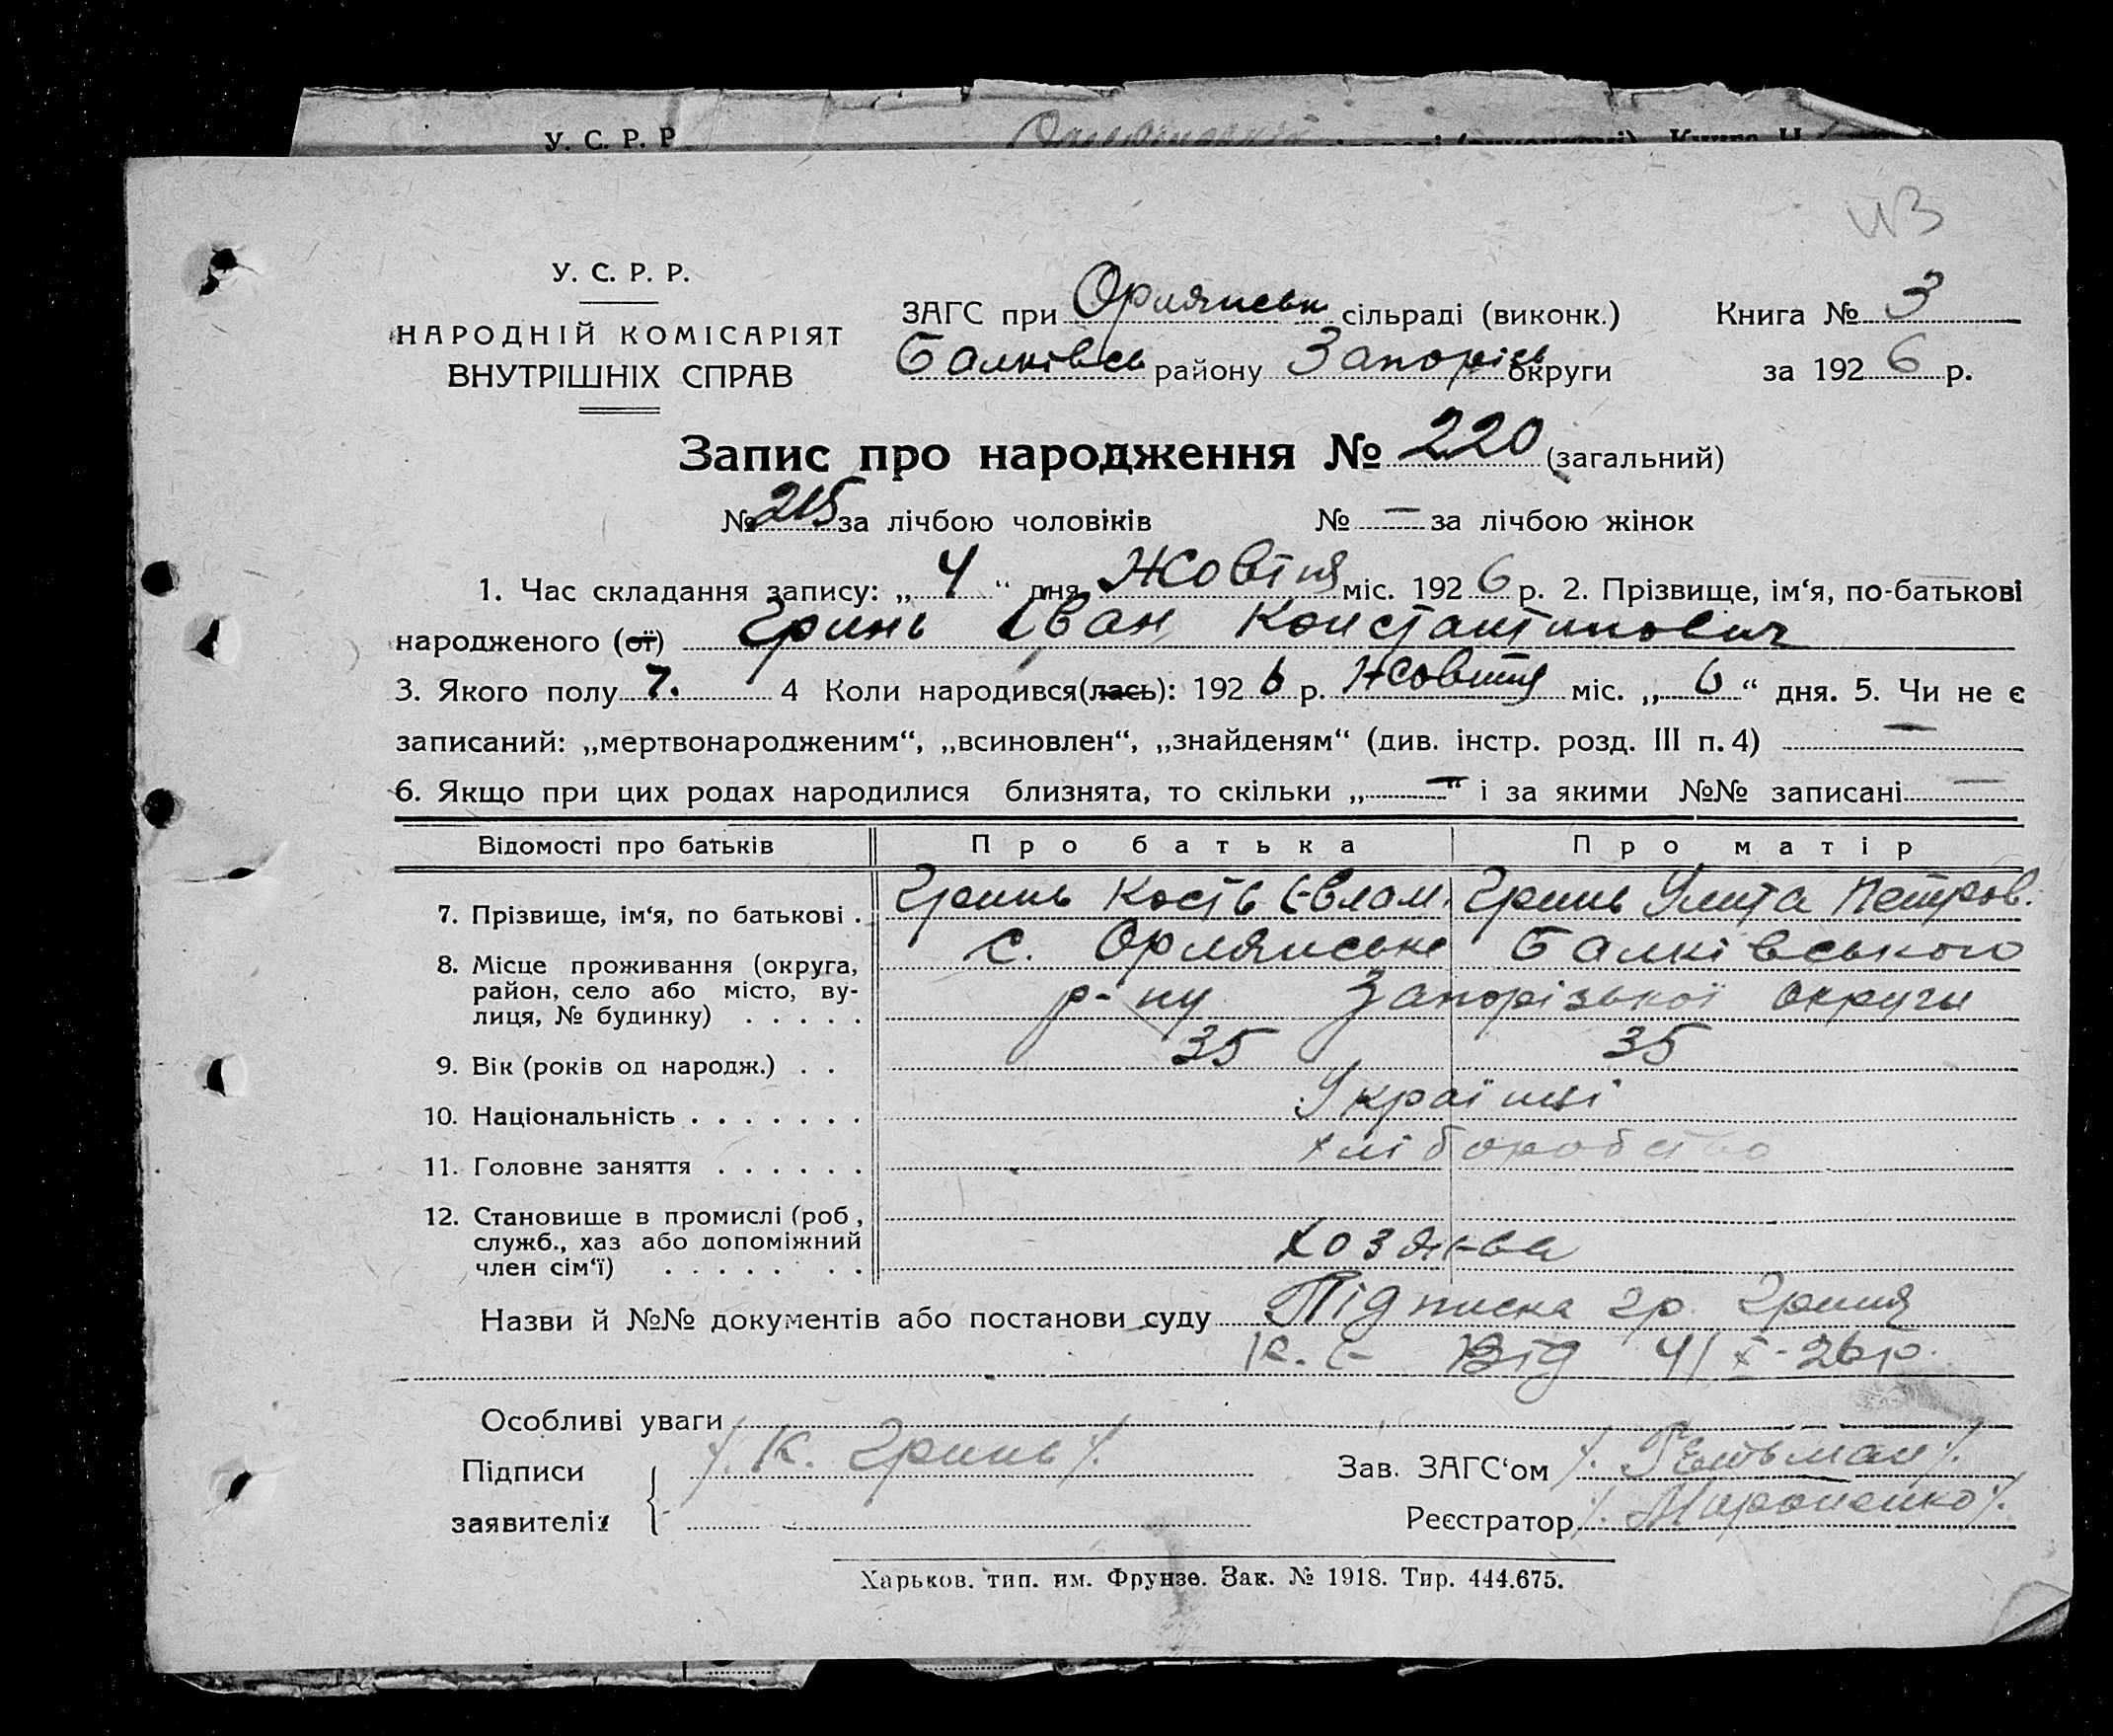 У. С. Р. Р
У. С. Р. Р.
НАРОДНІЙ КОМІСАРІЯТ
ВНУТРІШНІХ СПРАВ
ЗАГС при Орлянськ сільраді (виконк.) Книга № 3
Балківсь району Запорізь округи за 1926 р.
Запис про народження № 220 (загальний)
№ 215 за лічбою чоловіків № — за лічбою жінок
1. Час складання запису: „ 4 “ дня Жовтня міс. 1926 р. 2. Прізвище, ім‘я, по-батькові
народженого (ої) Гринь Іван Константинович
3. Якого полу 7. 4 Коли народився(лась): 1926 р. Жовтня міс. „ 6 “ дня. 5. Чи не є
записаний: „мертвонародженим“, „всиновлен“, „знайденям“ (див. інстр. розд. III п. 4) —
6. Якщо при цих родах народилися близнята, то скільки „—“ і за якими №№ записані —
Відомості про батьків Про батька Про матір
7. Прізвище, ім‘я, по батькові . Гринь Кость Євлам. Гринь Улита Петров.
8. Місце проживання (округа, с. Орлянське Балківського
район, село або місто, ву-
лиця, № будинку) . . . . . р-ну Запорізької округи
9. Вік (років од народж.) . . 35 35
10. Національність . . . . . . . Українці
11. Головне заняття . . . . . . хліборобство
12. Становище в промислі (роб,
служб., хаз або допоміжний
член сім‘ї) . . . . . . . . Хозяєва
Назви й №№ документів або постанови суду Підписка гр. Гриня
К. Є Від 4/X-26р.
Особливі уваги
Підписи /. К. Гринь /. Зав. ЗАГС‘ом /. Гетьман /.
заявителів Реєстратор /. Мироненко /.
Харьков. тип. им. Фрунзе. Зак. № 1918. Тир. 444.675.